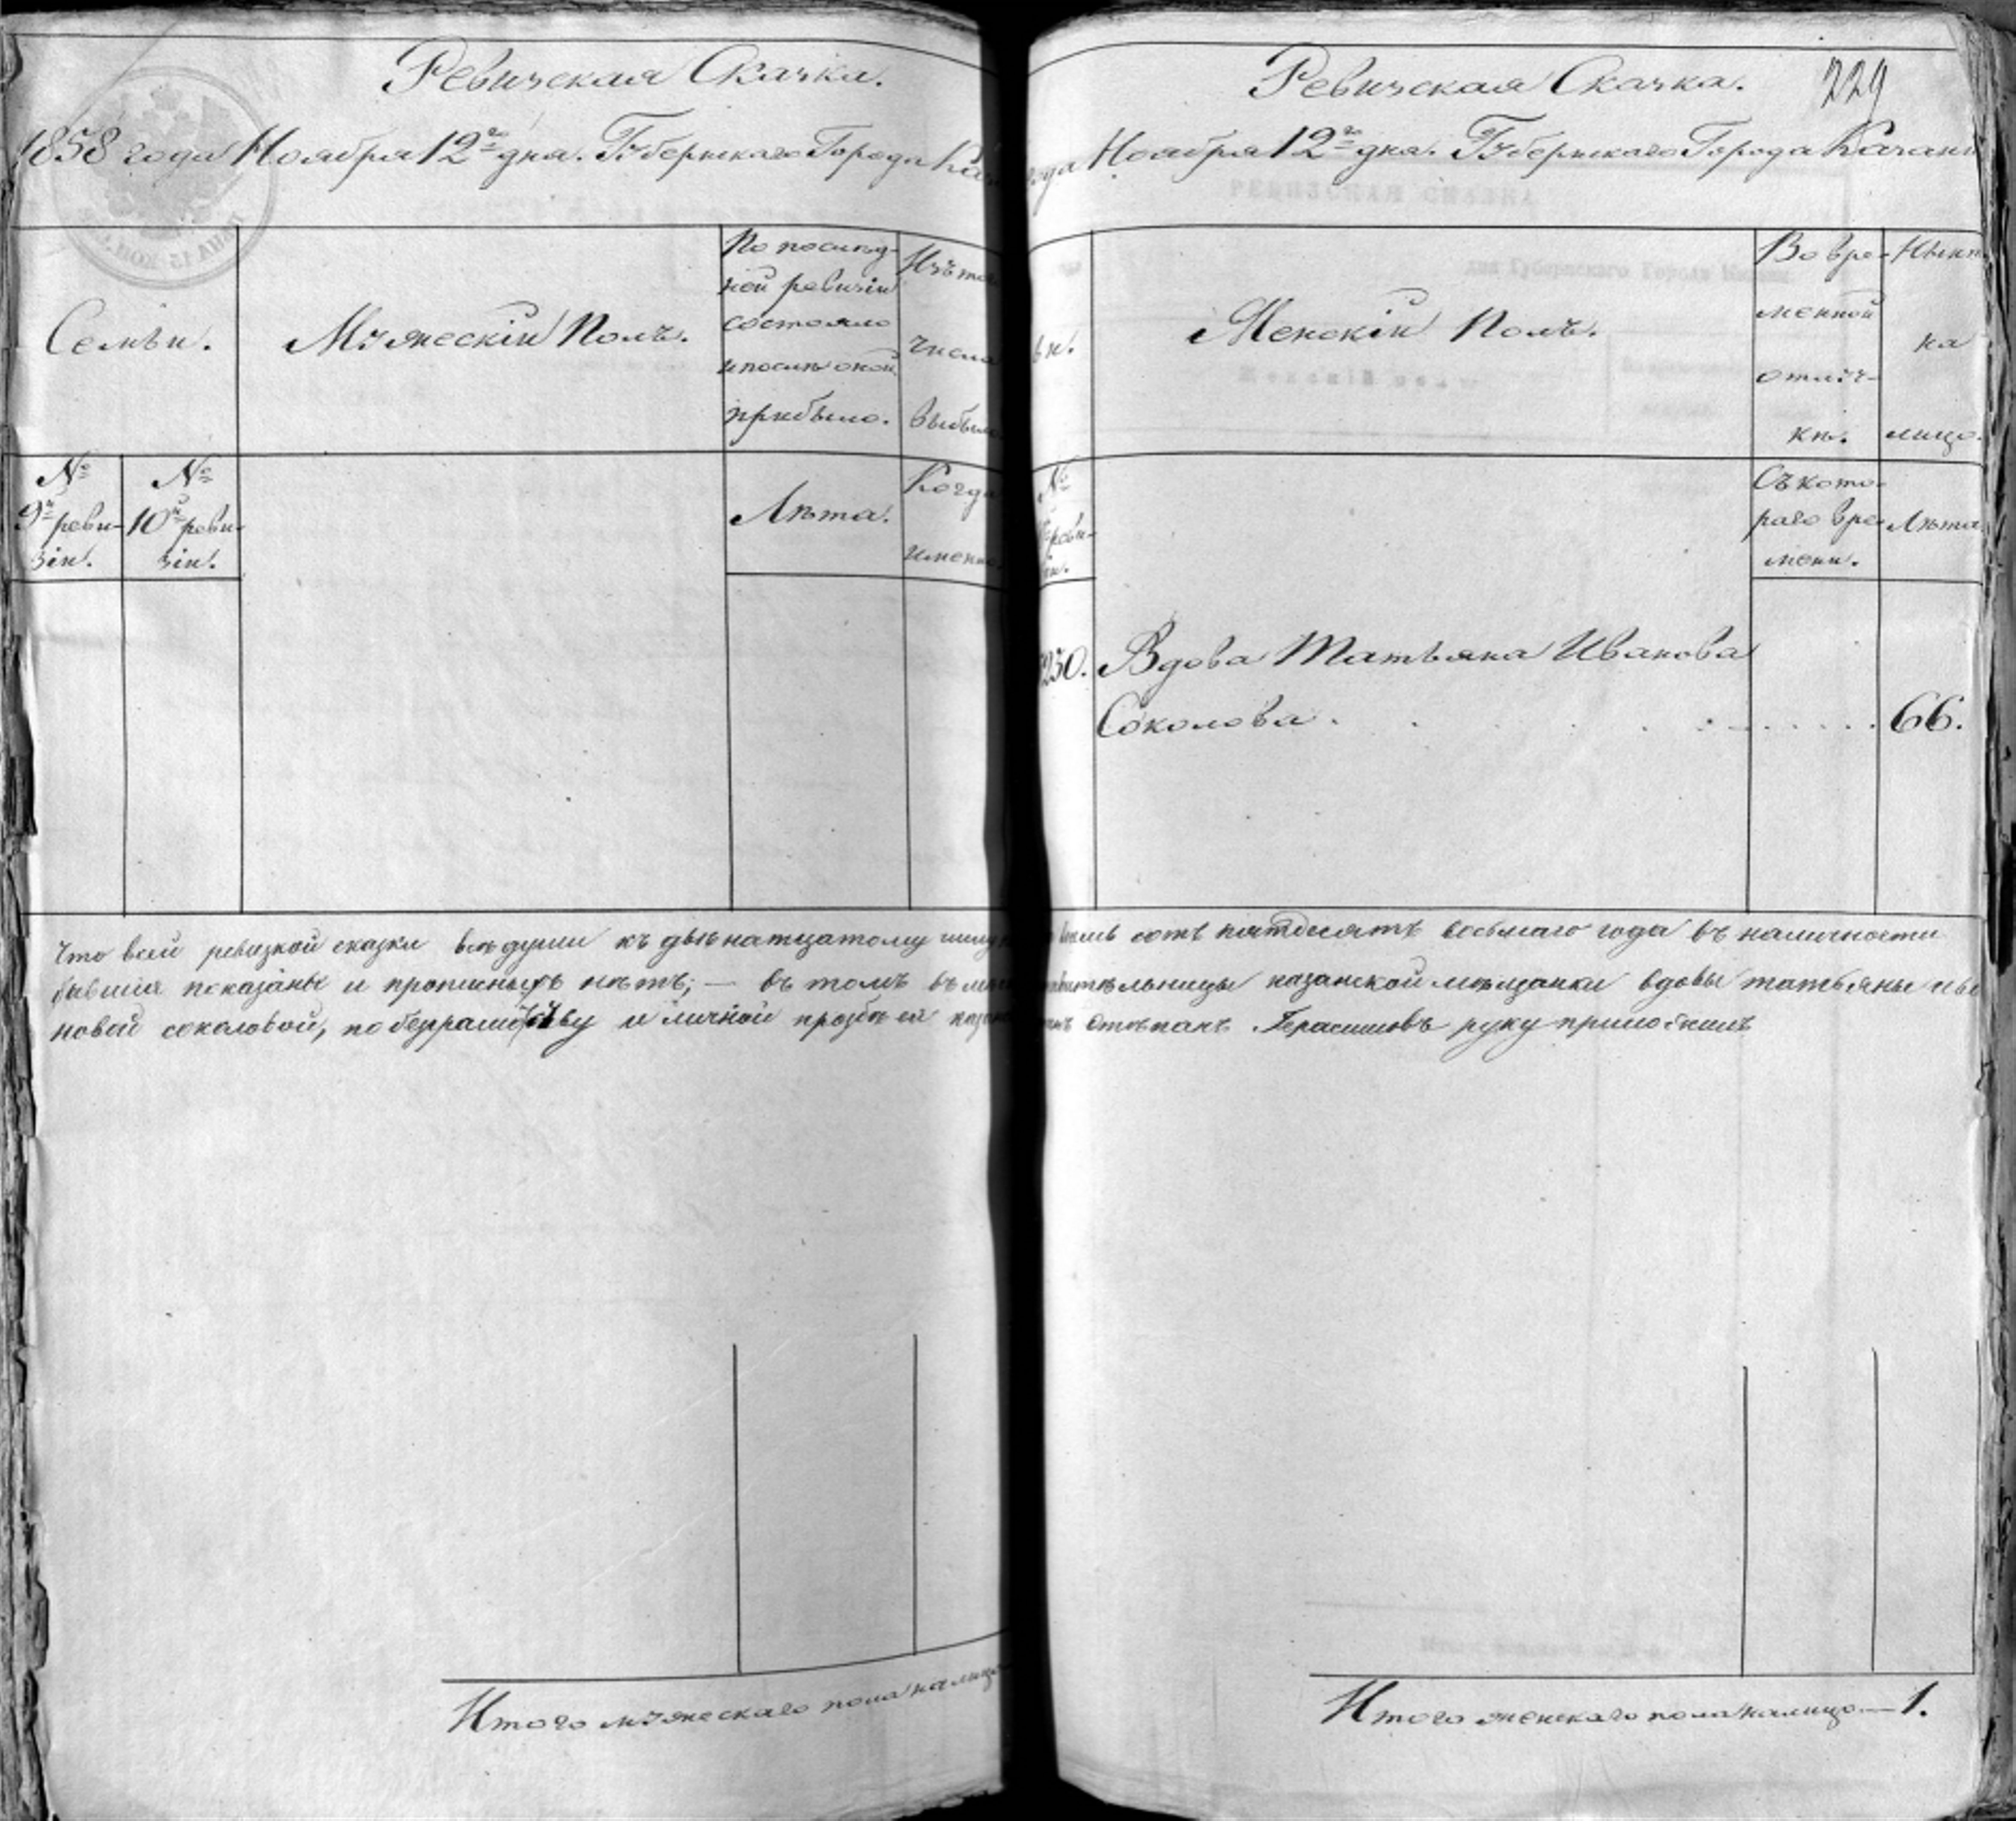 Ревизская Сказка.
1858 года Ноября 12го дня. Губернскаго Города Каз
Семьи.
Мужескій Полъ.
По послѣд-
ней ревизіи
состояло
и послѣ оной
прибыло.
Изъ того
числа
выбыло
№
9й реви-
зіи.
№
10й реви-
зіи.
Лѣта.
Когда
именно
229
Ревизская Сказка.
года Ноября 12го дня. Губернскаго Города Казани
ьи.
Женскій Полъ.
Во вре-
менной
отлуч-
кѣ.
Нынѣ
на
лицо.
№
реви-
зіи.
Съ кото-
раго вре-
мени.
Лѣта
230. Вдова Татьяна Иванова
Соколова. 66.
Что всей ревизкой сказки всѣ души къ двѣнатцатому числу восемь сотъ пятдесятъ восьмаго года въ наличности
бывшія показаны и прописныхъ нѣтъ; — въ томъ вѣсто казанской мѣщанки вдовы татьяны ива
новой соколовой, по безграмотству и личной прозбѣ ея Степанъ Герасимовъ руку приложилъ
Итого мужескаго пола налицо
Итого женскаго пола налицо — 1.